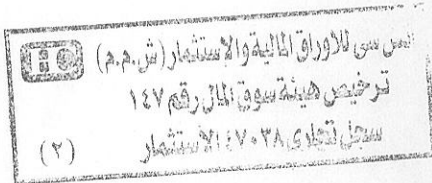 سى للاوراق المالية والاستثمار (ش.م.م)
ترخيص هيئة سوق المال رقم ١٤٧
سجل تجارى ٤٧٠٣٨ الاستثمار (٢)